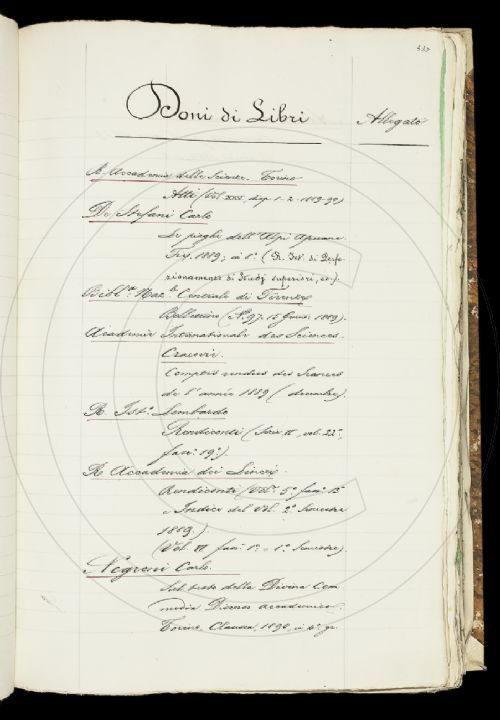 Doni di Libri
Allegato
R. Accademia delle Scienze. Torino
Atti (Vol. XXV. disp. 1-2. 1889-90)
De Stefani Carlo
Le pieghe dell'Alpi Apuane.
1889; in 8°. (R. Ist. di Perfe-
zionamento di Studj superiori, ec.).
Bibl.ª Naz.e Centrale di Firenze
Bollettino (N.° 97. 15 Genn. 1889).
Académie Internationale des Sciences.
Cracovie.
Comptes rendus des Séances
de l'année 1889 (décembre).
R. Ist.° Lombardo
Rendiconti (Serie II. vol. 22°,
fasc. 19°).
R. Accademia dei Lincei.
Rendiconti (Vol. 5° fasc. 13
e Indice del Vol. 2° Semestre
1889.).
(Vol. VI fasc. 1° - 1° Semestre).
Negroni Carlo.
Sul testo della Divina Com-
media Discorso accademico.
Torino, Clausen, 1890, in 4° gr.